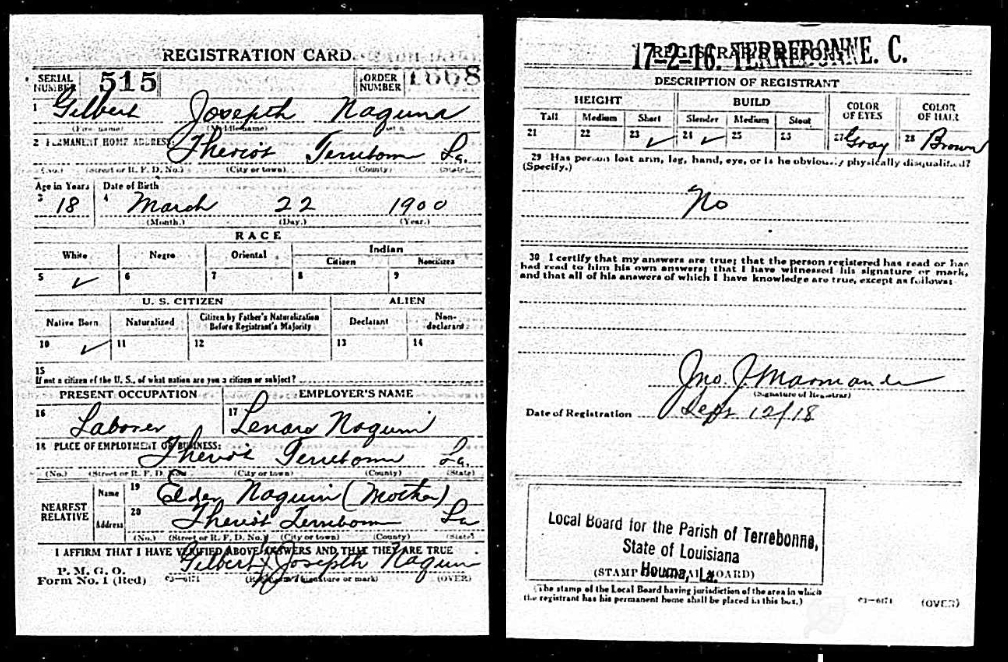 REGISTRATION CARD
SERIAL NUMBER 515
ORDER NUMBER 1668
1 Gilbert Josepth Naquin
(First name) (Middle name)
2 PERMANENT HOME ADDRESS Theriot Terrebonn La.
(No.) (Street or R. F. D. No.) (City or town) (County) (State)
Age in Years Date of Birth
3 18 4 March 22 1900
(Month.) (Day.) (Year.)
RACE
White Negro Oriental Indian
Citizen Noncitizen
5 ✓ 6 7 8 9
U. S. CITIZEN ALIEN
Native Born Naturalized Citizen by Father's Naturalization Before Registrant's Majority Declarant Non-declarant
10 ✓ 11 12 13 14
15
If not a citizen of the U. S., of what nation are you a citizen or subject?
PRESENT OCCUPATION EMPLOYER'S NAME
16 Laborer 17 Naquin
18 PLACE OF EMPLOYMENT OR BUSINESS:
Theriot Terrebonn La.
(No.) (Street or R. F. D. No.) (City or town) (County) (State)
NEAREST RELATIVE
Name 19 Naquin (Mother)
Address 20 Theriot Terrebonn La
(No.) (Street or R. F. D. No.) (City or town) (County) (State)
I AFFIRM THAT I HAVE VERIFIED ABOVE ANSWERS AND THAT THEY ARE TRUE
P. M. G. O.
Form No. 1 (Red) 03-6171 Gilbert Josepth Naquin
(Registrant's signature or mark) (OVER)
REGISTRAR'S REPORT
17-2-16. TERREBONNE. C.
DESCRIPTION OF REGISTRANT
HEIGHT BUILD COLOR OF EYES COLOR OF HAIR
Tall Medium Short Slender Medium Stout
21 22 23 ✓ 24 ✓ 25 26 27 Gray 28 Brown
29 Has person lost arm, leg, hand, eye, or is he obviously physically disqualified?
(Specify.)
No
30 I certify that my answers are true; that the person registered has read or has
had read to him his own answers; that I have witnessed his signature or mark,
and that all of his answers of which I have knowledge are true, except as follows:
Jno. J. Marmande
(Signature of Registrar)
Date of Registration Sept 12/18
Local Board for the Parish of Terrebonne,
State of Louisiana
Houma, La.
(STAMP OF LOCAL BOARD)
(The stamp of the Local Board having jurisdiction of the area in which
the registrant has his permanent home shall be placed in this box.)
03-6171 (OVER)